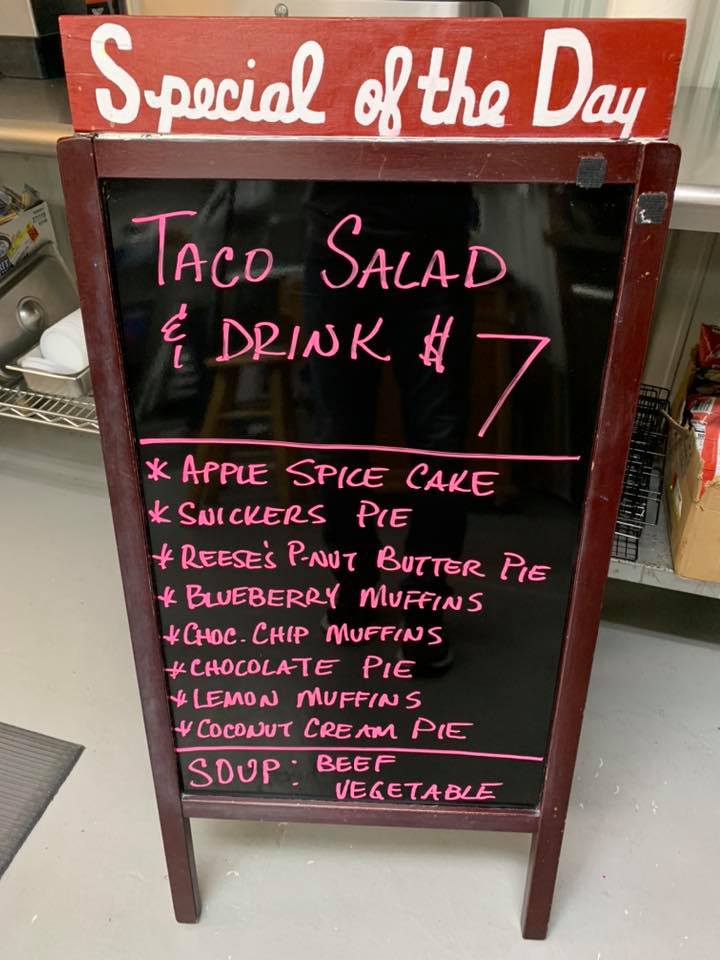 Special of the Day
TACO SALAD
& DRINK $7
* APPLE SPICE CAKE
* SNICKERS PIE
* REESE'S P-NUT BUTTER PIE
* BLUEBERRY MUFFINS
* CHOC. CHIP MUFFINS
* CHOCOLATE PIE
* LEMON MUFFINS
* COCONUT CREAM PIE
SOUP: BEEF
VEGETABLE